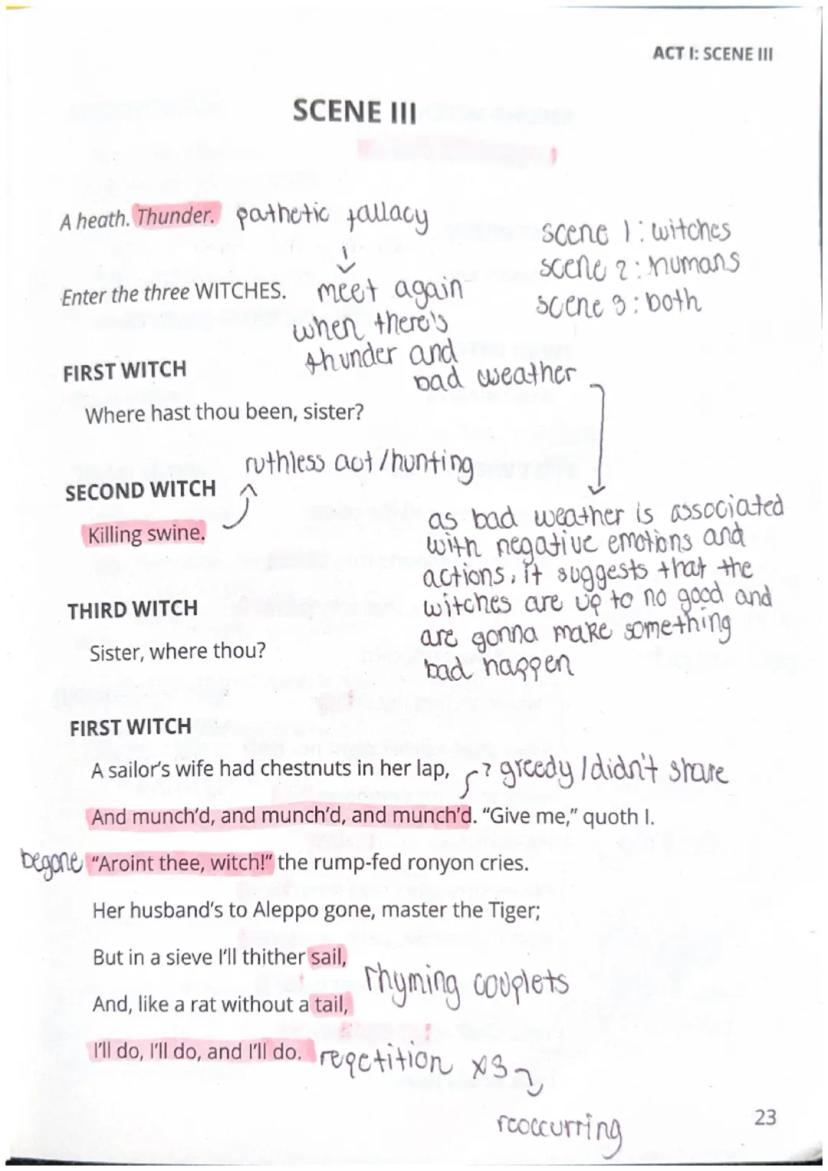 ACT I: SCENE III
SCENE III
A heath. Thunder. pathetic fallacy
scene 1: witches
scene 2: humans
scene 3: both
Enter the three WITCHES. meet again
when there's
thunder and
bad weather
FIRST WITCH
Where hast thou been, sister?
ruthless act/hunting
SECOND WITCH
Killing swine.
as bad weather is associated
with negative emotions and
actions, it suggests that the
witches are up to no good and
are gonna make something
bad happen
THIRD WITCH
Sister, where thou?
FIRST WITCH
A sailor's wife had chestnuts in her lap, ? greedy/didn't share
And munch'd, and munch'd, and munch'd. “Give me,” quoth I.
begone “Aroint thee, witch!” the rump-fed ronyon cries.
Her husband's to Aleppo gone, master the Tiger;
But in a sieve I'll thither sail,
rhyming couplets
And, like a rat without a tail,
I'll do, I'll do, and I'll do. repetition x3
reoccurring
23